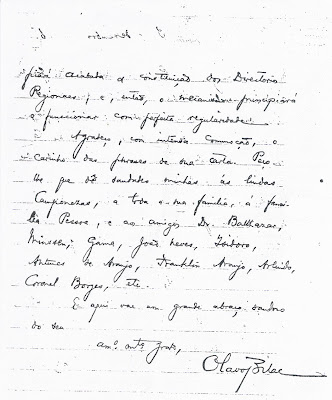 ficará acabada a constituição dos Directorio
Regionaes; e, então, o mecanismo principiará
a funccionar com perfeita regularidade.
Agradeço, com intensa commoção, o
carinho das phrases de sua carta. Peço
lhe que dê saudades minhas ás lindas
Camponezas, a toda a sua familia, á fami
lia Pessoa, e ao amigos Dr. Balthazar,
Gama, João Neves, Isidoro,
Antunes de Araujo, Franklin Araujo, Arlindo,
Coronel Borges, etc.
E aqui vae um grande abraço saudoso
do seu
am.º mt.º grato,
Olavo Bilac